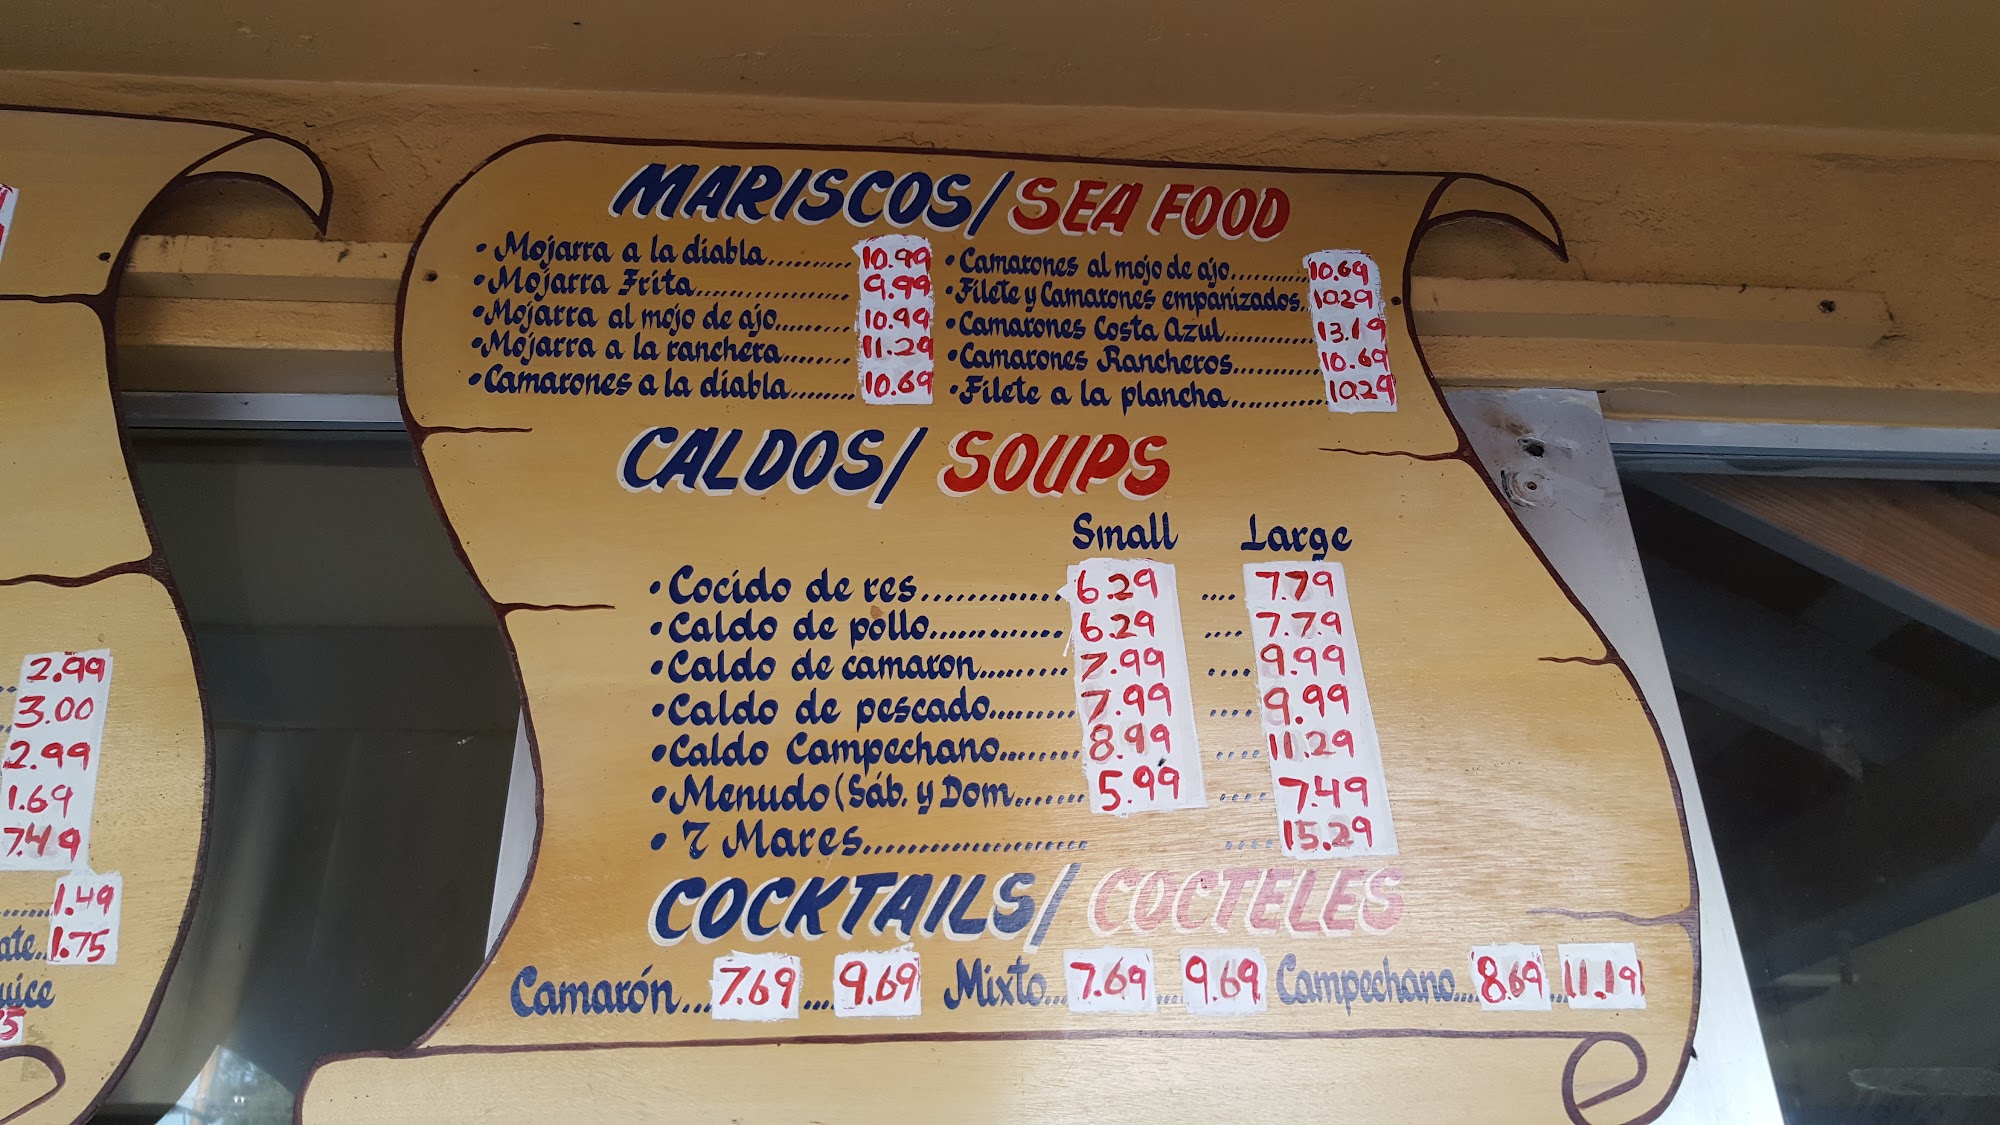 MARISCOS/SEA FOOD
• Mojarra a la diabla.......... 10.99
• Mojarra Frita.................. 9.99
• Mojarra al mojo de ajo......... 10.99
• Mojarra a la ranchera........ 11.29
• Camarones a la diabla........ 10.69
• Camarones al mojo de ajo.......... 10.69
• Filete y Camarones empanizados. 10.29
• Camarones Costa Azul.......... 13.19
• Camarones Rancheros........... 10.69
• Filete a la plancha............ 10.29
CALDOS/ SOUPS
Small Large
• Cocido de res.............. 6.29 .... 7.79
• Caldo de pollo............. 6.29 .... 7.79
• Caldo de camaron......... 7.99 .... 9.99
• Caldo de pescado......... 7.99 .... 9.99
• Caldo Campechano........ 8.99 .... 11.29
• Menudo (Sáb. y Dom....... 5.99 .... 7.49
• 7 Mares....................... .... 15.29
COCKTAILS/ COCTELES
Camarón... 7.69 .... 9.69 Mixto... 7.69 ... 9.69 Campechano.... 8.69 ... 11.19
2.99
3.00
2.99
1.69
7.49
1.49
1.75